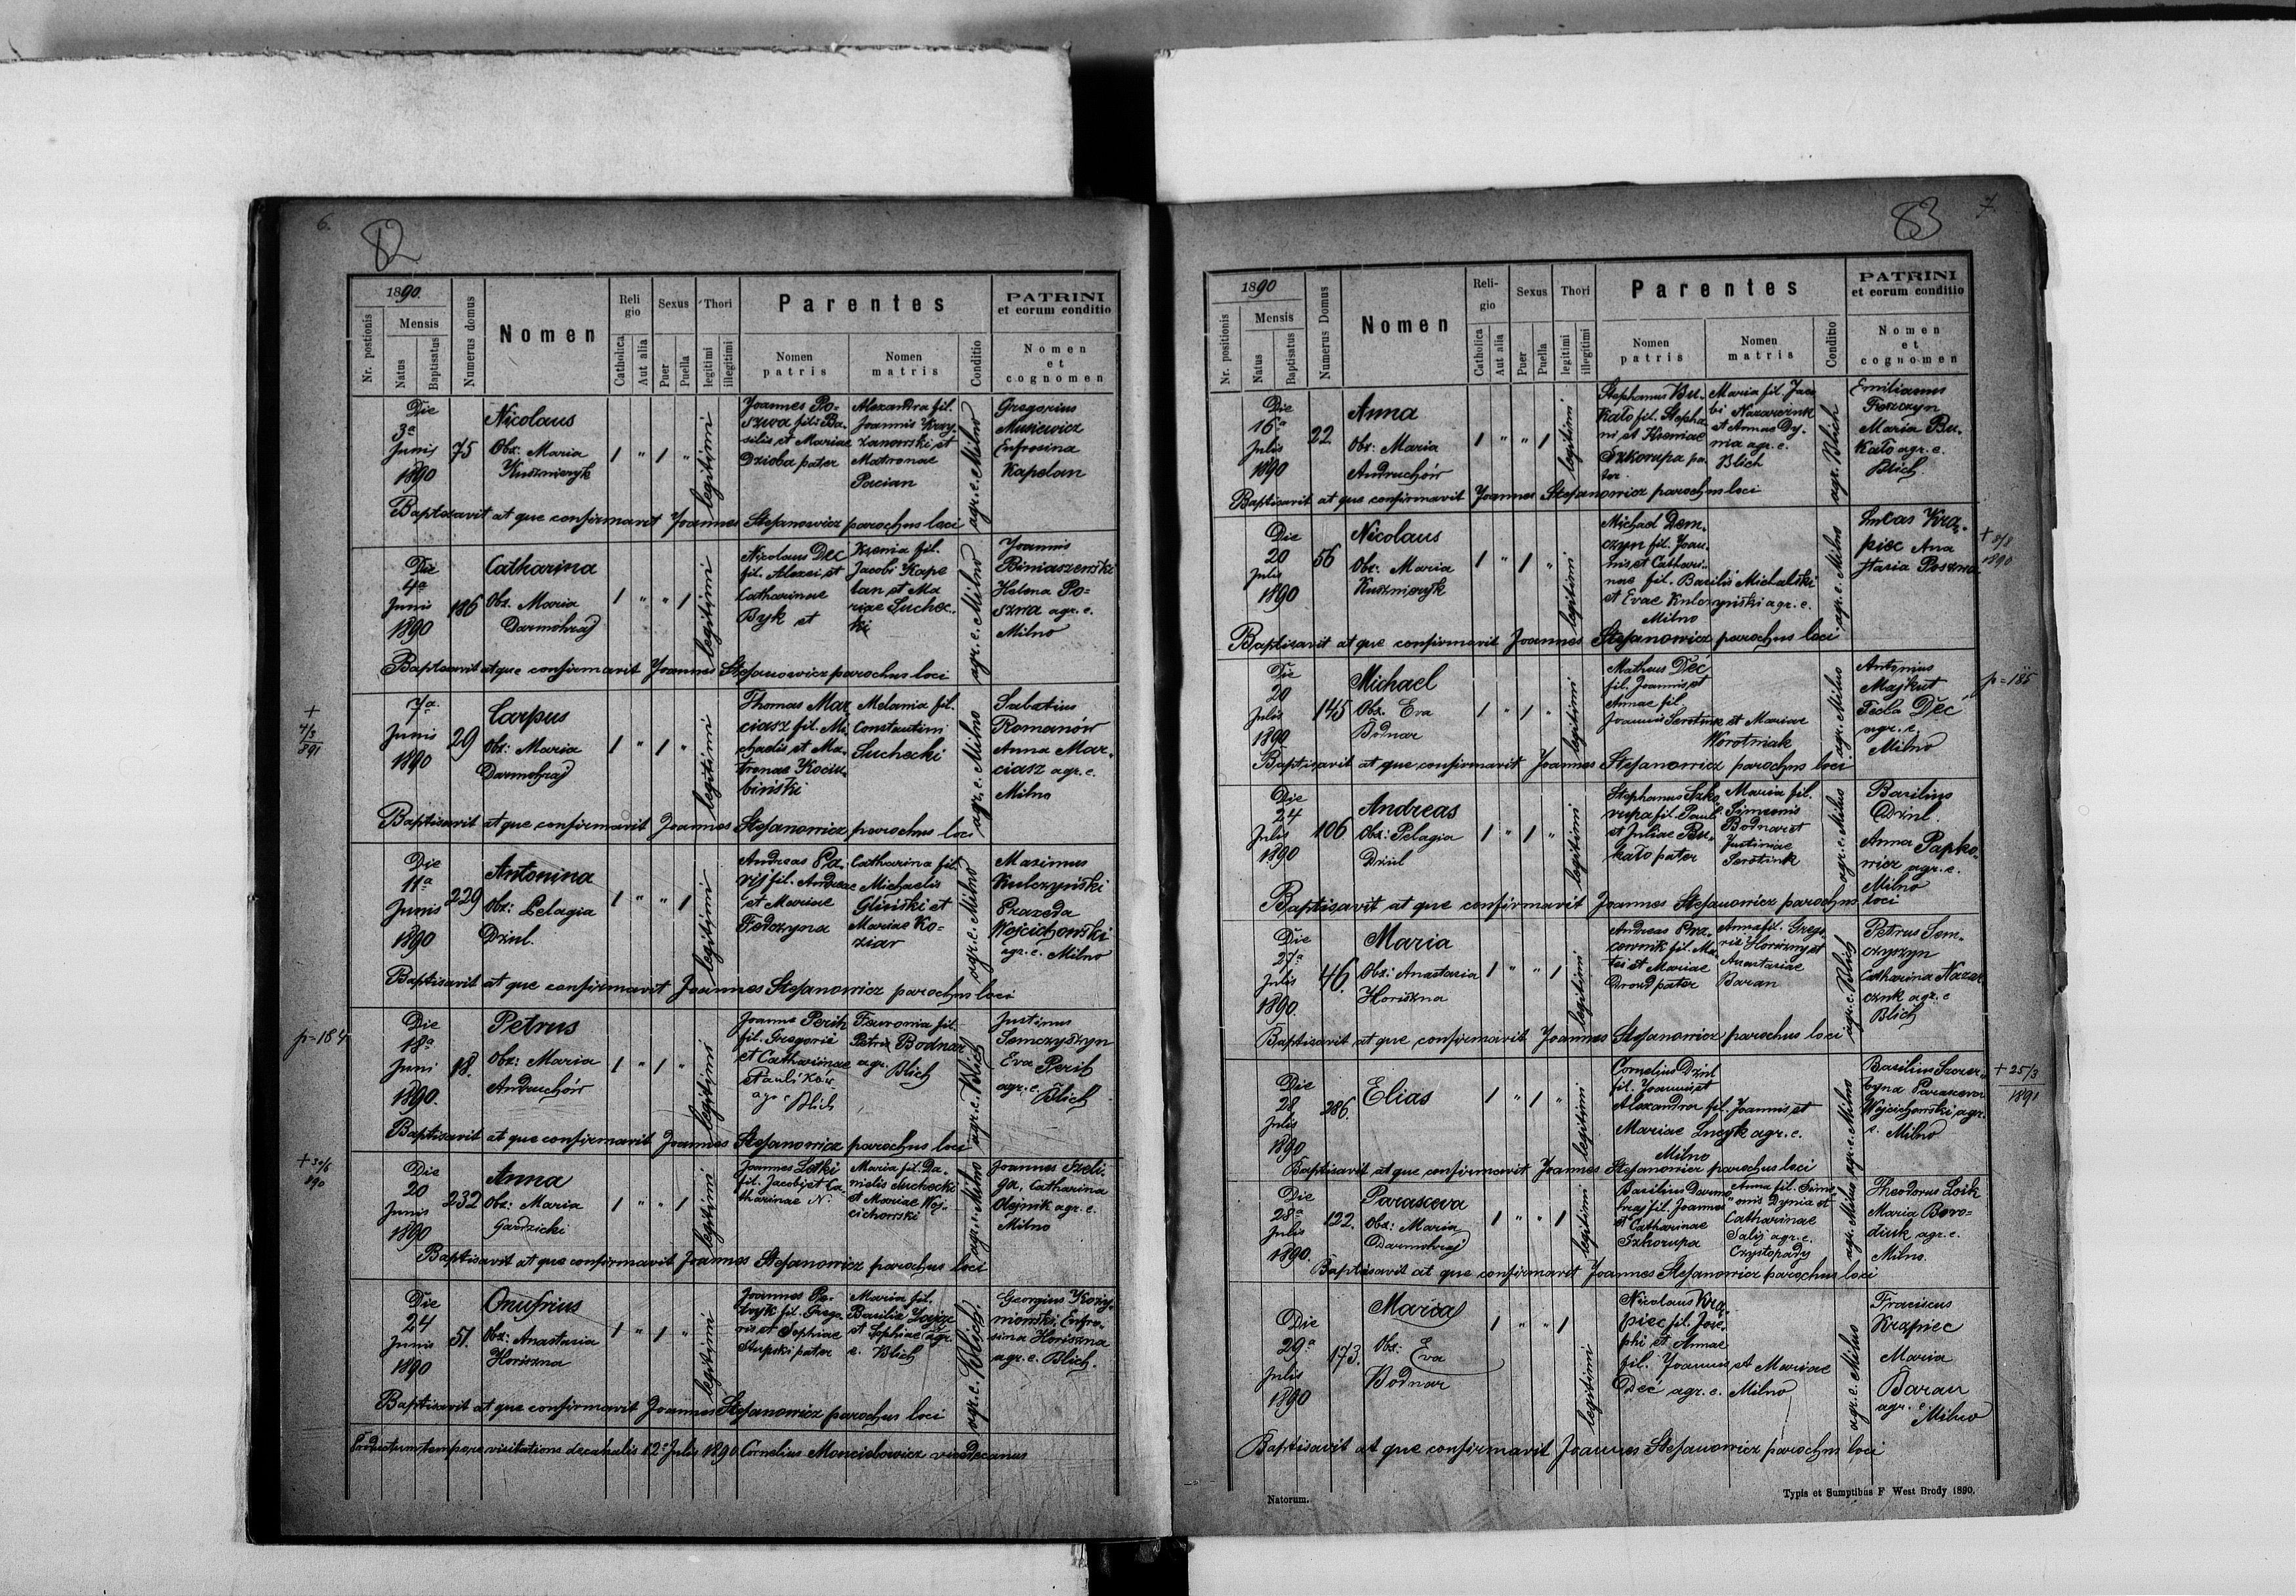 6.
82
1890.
Nr. postionis
Mensis
Natus
Baptisatus
Numerus domus
Nomen
Reli
gio
Catholica
Aut alia
Sexus
Puer
Puella
Thori
legitimi
illegitimi
Parentes
Nomen
patris
Nomen
matris
Conditio
PATRINI
et eorum conditio
Nomen
et
cognomen
Die
3a
Junij
1890
75
Nicolaus
Obz: Maria
Kusznieryk
1 " 1 "
legitimi
Joannes Po-
szwa fil: Ba-
silii et Mariae
Dzioba pater
Alexandra fil.
Joannis Krzy-
żanowski et
Matronae
Pacian
agr. e. Milno
Gregorius
Musiewicz
Eufrosina
Kapelan
Baptisavit at que confirmavit Joannes Stefanowicz parochus loci
Die
4a
Junis
1890
186
Catharina
Obz. Maria
Darmohraj
1 " " 1
legitimi
Nicolaus Dec
fil. Alexei et
Catharinae
Byk et
Ksenia fil.
Jacobi Kape
lan et Ma
riae Suchec-
ki
agr. e. Milno
Joannis
Biniaszewski
Helena Po-
szwa agr. e.
Milno
Baptisavit at que confirmavit Joannes Stefanowicz parochus loci
+
4/3
891
7a
Junis
1890
29
Carpus
Obz: Maria
Darmohraj
1 " 1 "
legitimi
Thomas Mar
ciasz fil. Mi-
chaelis et Ma-
tronae Kociu-
biński
Melania fil.
Constantini
Suchecki
agr. e. Milno
Sabatius
Romanów
Anna Mar-
ciasz agr. e.
Milno
Baptisavit at que confirmavit Joannes Stefanowicz parochus loci
Die
11a
Junis
1890
229
Antonina
Obz: Pelagia
Dziul.
1 " " 1
legitimi
Andreas Pa-
rij fil. Andreae
et Mariae
Fedczyna
Catharina fil.
Michaelis
Gliński et
Mariae Ko-
ziar
agr. e. Milno
Maximus
Kulczyński
Praxeda
Wojcichowski
agr. e. Milno
Baptisavit at que confirmavit Joannes Stefanowicz parochus loci
p=184
Die
18a
Juni
1890.
18.
Petrus
Obz: Maria
Andruchów
1 " 1 "
legitimi
Joannes Perih
fil. Gregorii
et Catharinae
et Paulików
agr. e. Blich
Fewronia fil.
Petri Bodnar
agr. Blich
agr. e. Blich
Justinus
Semczyszyn
Eva Perih
agr. e.
Blich
Baptisavit at que confirmavit Joannes Stefanowicz parochus loci
+ 30/6
890
Die
20
Junis
1890
232
Anna
Obz: Maria
Gardzicki
1 " " 1
legitimi
Joannes Letki
fil. Jacobi et Ca-
tharinae N.
Maria fil. Da-
nielis Suchecki
et Mariae Woj-
cichowski
agr. e. Milno
Joannes Szeli-
ga, Catharina
Olejnik agr. e.
Milno
Baptisavit at que confirmavit Joannes Stefanowicz parochus loci
Die
24
Junis
1890
51.
Onufrius
Obz: Anastasia
Horiszna
1 " 1 "
legitimi
Joannes
fil. Grego-
rii et Sophiae
Stupski pater
Maria fil.
Basilii
et Sophiae agr.
e. Blich
agr. e. Blich.
Georgius
Eufro-
sina Horiszna
agr. e. Blich.
Baptisavit at que confirmavit Joannes Stefanowicz parochus loci
Productum tempore visitationis decanalis 12a Julis 1890 Cornelius Monciebowicz viceDecanus
7.
83
1890
Nr. positionis
Mensis
Natus
Baptisatus
Numerus Domus
Nomen
Reli-
gio
Catholica
Aut alia
Sexus
Puer
Puella
Thori
legitimi
illegitimi
Parentes
Nomen
patris
Nomen
matris
Conditio
PATRINI
et eorum conditio
Nomen
et
cognomen
Die
16a
Julis
1890
22
Anna
Obz: Maria
Andruchów
1 " " 1
legitimi
Stephanus Bu-
kało fil. Stepha
ni et Kseniae
Szkorupa pa-
ter
Maria fil. Jaco
bi Nazarczuk
et Annae Dy-
nia agr. e.
Blich
agr. Blich
Emilianus
Fiszczyn
Maria Bu-
kało agr. e.
Blich.
Baptisavit at que confirmavit Joannes Stefanowicz parochus loci
Die
20
Julis
1890
56
Nicolaus
Obz. Maria
Kusznieryk
1 " 1 "
legitimi
Michael Dem-
czyn fil. Joan-
nis et Cathari-
nae fil. Basilii Michalski
et Evae Kulczyński agr. e.
Milno
agr. e. Milno
Lucas Kra-
piec Ana
stasia Poszwa
+ 8/8
1890
Baptisavit at que confirmavit Joannes Stefanowicz parochus loci
Die
20
Julis
1890
145
Michael
Obz. Eva
Bodnar
1 " 1 "
legitimi
Matheus Déc
fil. Joannis et
Annae fil.
Joannis Serotiuk et Mariae
Worotniak
agr. e. Milno
Antonius
Majkut
Tecla Déc
agr. e.
Milno
p=185
Baptisavit at que confirmavit Joannes Stefanowicz parochus loci
Die
24
Julis
1890
106
Andreas
Obz: Pelagia
Dziul
1 " 1 "
legitimi
Stephanus Szko-
rupa fil. Pauli
et Juliae Bu-
kało pater
Maria fil.
Simeonis
Bodnar et
Justiniae
Serotiuk
agr. e. Milno
Basilius
Dziul.
Anna Papko-
wicz agr. e.
Milno
Baptisavit at que confirmavit Joannes Stefanowicz parochus loci
Die
27a
Julis
1890.
46.
Maria
Obz: Anastasia
Horiszna
1 " " 1
legitimi
Andreas Pra-
cownik fil. Ma-
tei et Mariae
Drozd pater
Anna fil. Grego-
rii Horiszny et
Anastasiae
Baran
agr. e. Blich
Petrus Sem-
czyszyn
Catharina Nazar
czuk agr. e
Blich
Baptisavit at que confirmavit Joannes Stefanowicz parochus loci
Die
28
Julis
1890
286.
Elias
1 " 1 "
legitimi
Cornelius Dziul
fil. Joannis et
Alexandra fil. Joannis et
Mariae Lucyk agr. e.
Milno
agr. e. Milno
Basilius Szczer-
byna Parasceva
Wojcichowski agr.
e. Milno
+ 25/3
1891
Baptisavit at que confirmavit Joannes Stefanowicz parochus loci
Die
28a
Julis
1890.
122.
Parasceva
Obz: Maria
Darmohraj
1 " " 1
legitimi
Basilius Darmo
hraj fil. Joannis
et Catharinae
Szkorupa
Anna fil. Sime
onis Dynia et
Catharinae
Salij agr. e.
Czystopady
agr. e. Milno
Theodorus Loik
Maria Boro-
diuk agr. e.
Milno.
Baptisavit at que confirmavit Joannes Stefanowicz parochus loci
Die
29a
Julis
1890
173.
Maria
Obz. Eva
Bodnar
1 " " 1
legitimi
Nicolaus Kra-
piec fil. Jose-
phi et Annae
fil. Joannis et Mariae
Déc agr. e. Milno
agr. e. Milno
Fraciscus
Krapiec
Maria
Baran
agr. e.
Milno
Baptisavit at que confirmavit Joannes Stefanowicz parochus loci
Natorum.
Typis et Sumptibus F West Brody 1890.